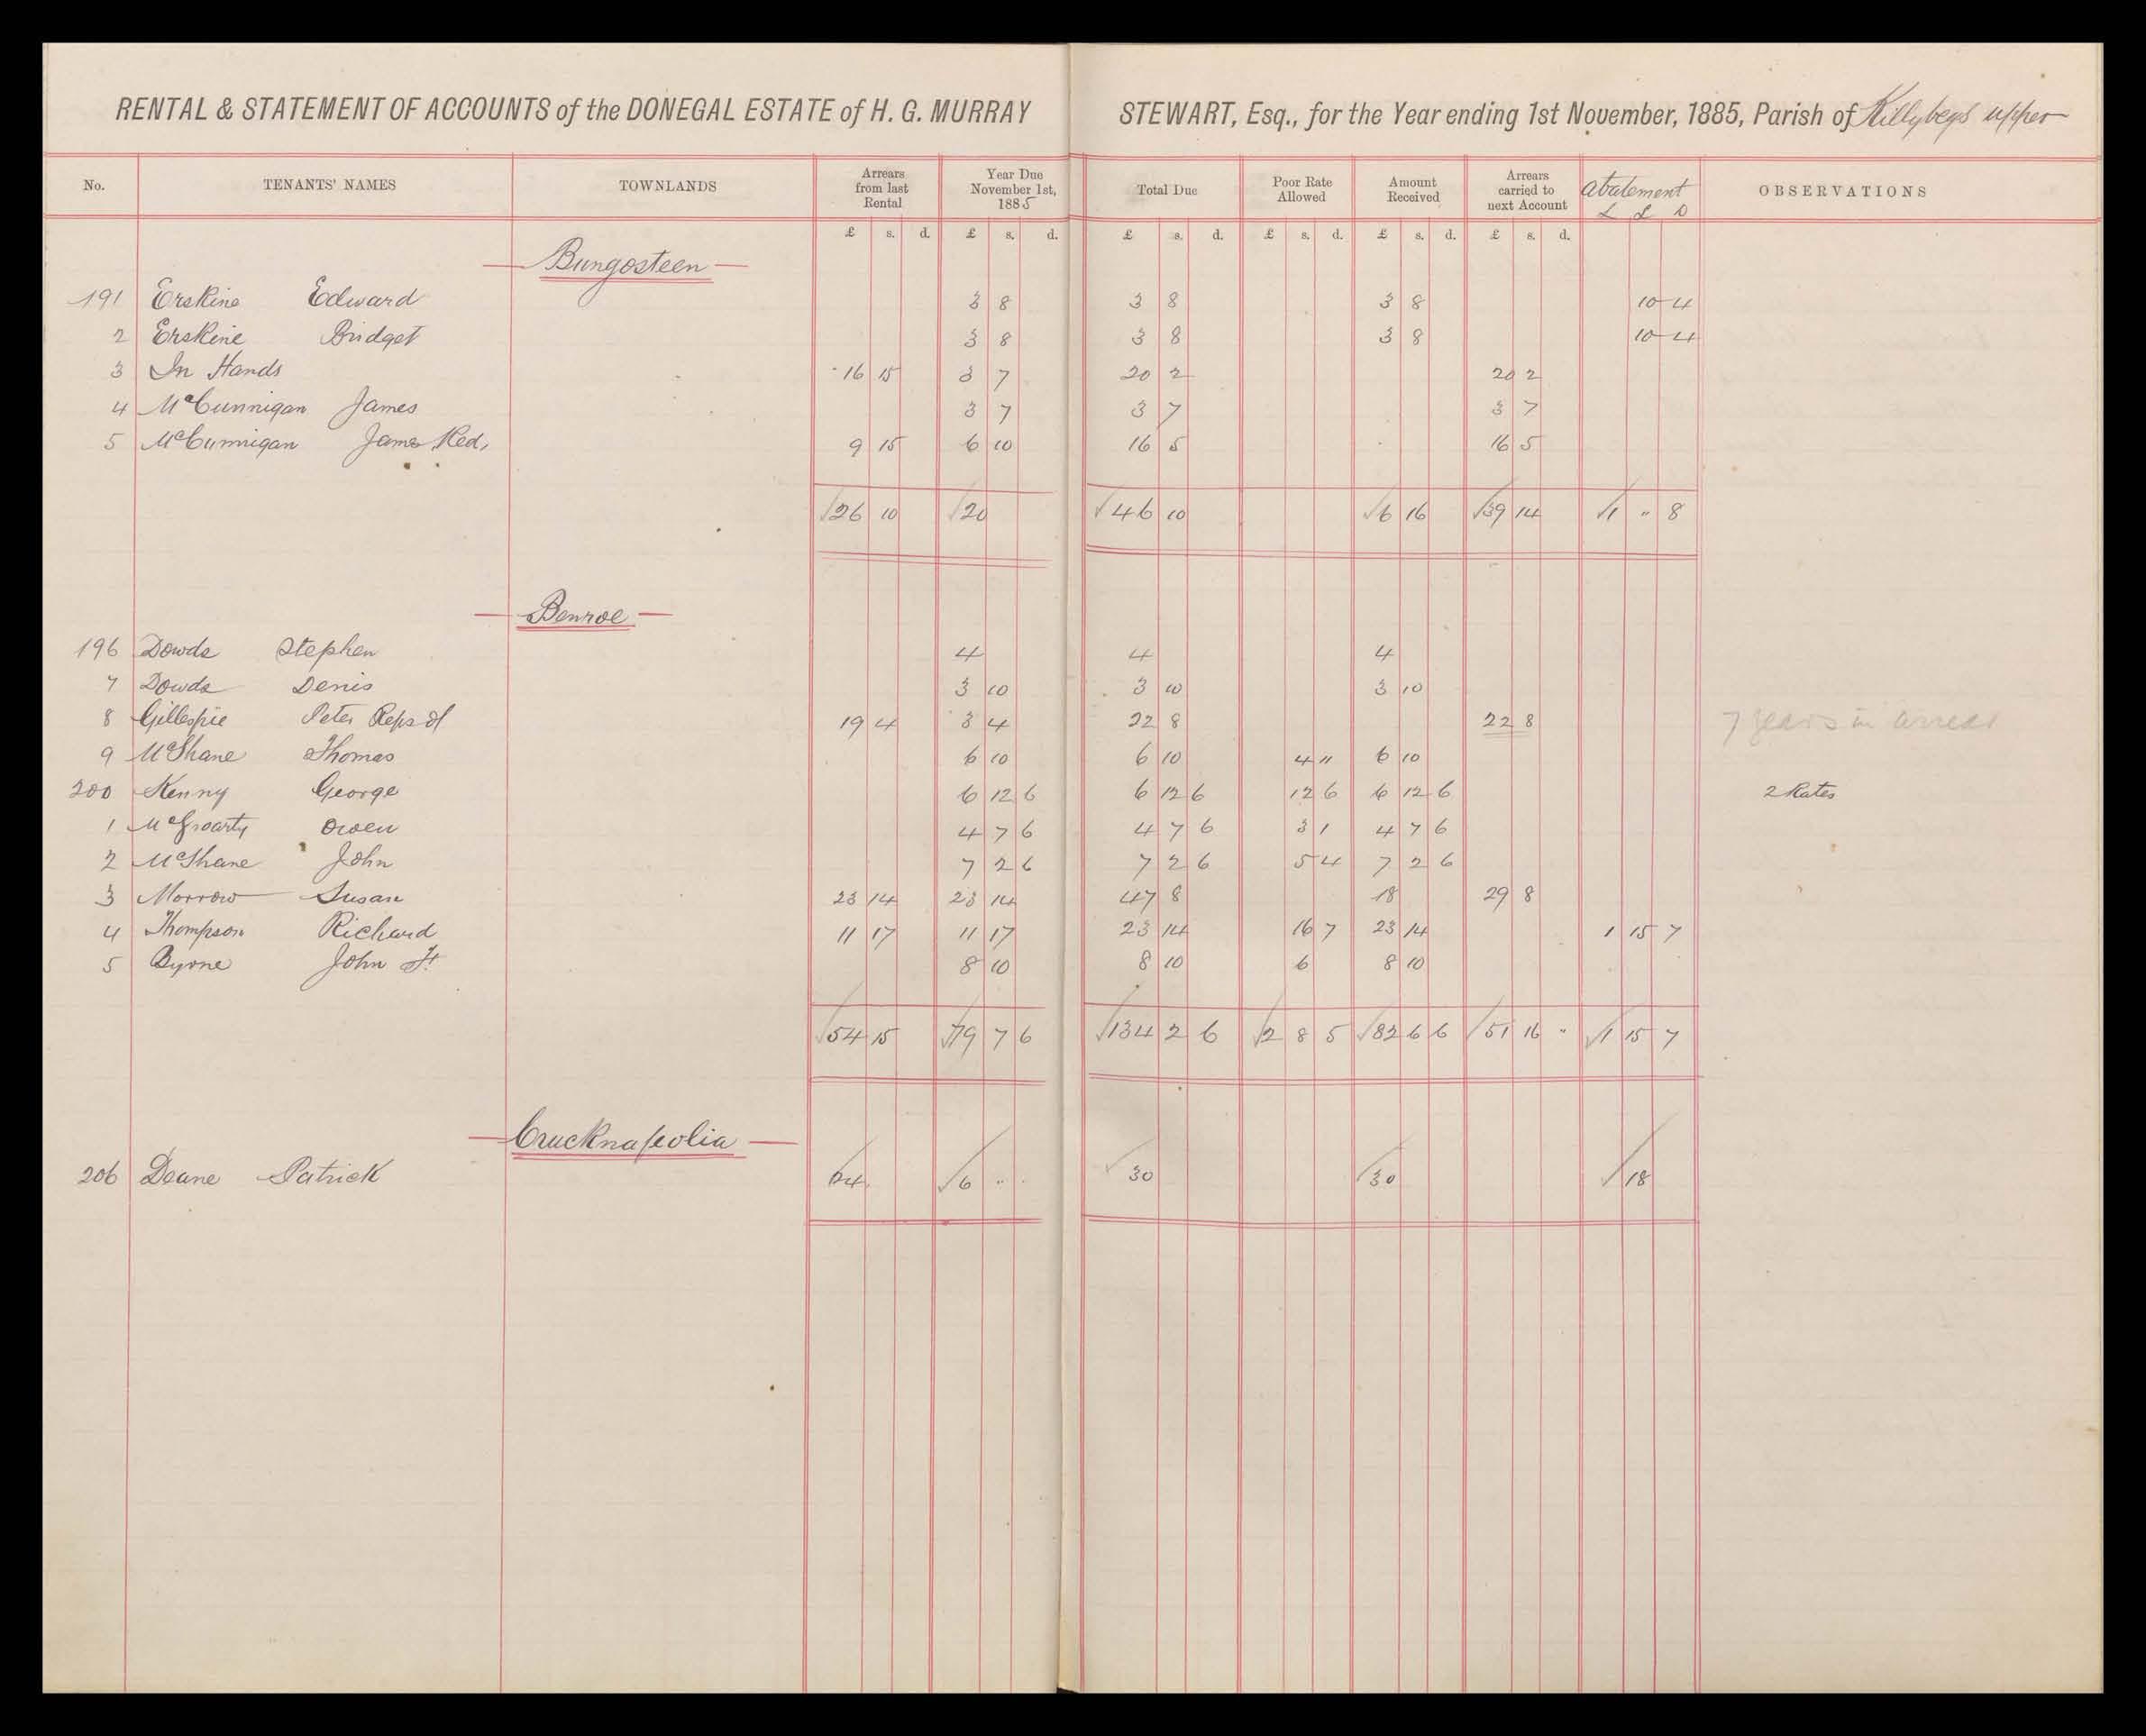 RENTAL & STATEMENT OF ACCOUNTS of the DONEGAL ESTATE of H. G. MURRAY STEWART, Esq., for the Year ending 1st November, 1885, Parish of Killybegs upper
No. TENANTS' NAMES TOWNLANDS Arrears from last Rental Year Due November 1st, 1885 Total Due Poor Rate Allowed Amount Received Arrears carried to next Account Abatement £ £ D OBSERVATIONS
£ s. d. £ s. d. £ s. d. £ s. d. £ s. d. £ s. d.
Bungosteen
191 Erskine Edward 3 8 3 8 3 8 10 4
2 Erskine Bridget 3 8 3 8 3 8 10 4
3 In Hands 16 15 3 7 20 2 20 2
4 McCunnigan James 3 7 3 7 3 7
5 McCunnigan James Red. 9 15 6 10 16 5 16 5
26 10 20 46 10 6 16 39 14 1 " 8
Benroe
196 Dowds Stephen 4 4 4
7 Dowds Denis 3 10 3 10 3 10
8 Gillespie Peter Reps of 19 4 3 4 22 8 22 8 7 years in arrear
9 McShane Thomas 6 10 6 10 4 " 6 10
200 Kenny George 6 12 6 6 12 6 12 6 6 12 6 2 Rates
1 McGroarty Owen 4 7 6 4 7 6 3 1 4 7 6
2 McShane John 7 2 6 7 2 6 5 4 7 2 6
3 Morrow Susan 23 14 23 14 47 8 18 29 8
4 Thompson Richard 11 17 11 17 23 14 16 7 23 14 1 15 7
5 Byrne John 8 10 8 10 6 8 10
54 15 79 7 6 134 2 6 2 8 5 82 6 6 51 16 " 1 15 7
Crucknafeolia
206 Deane Patrick 24 6 " 30 30 18